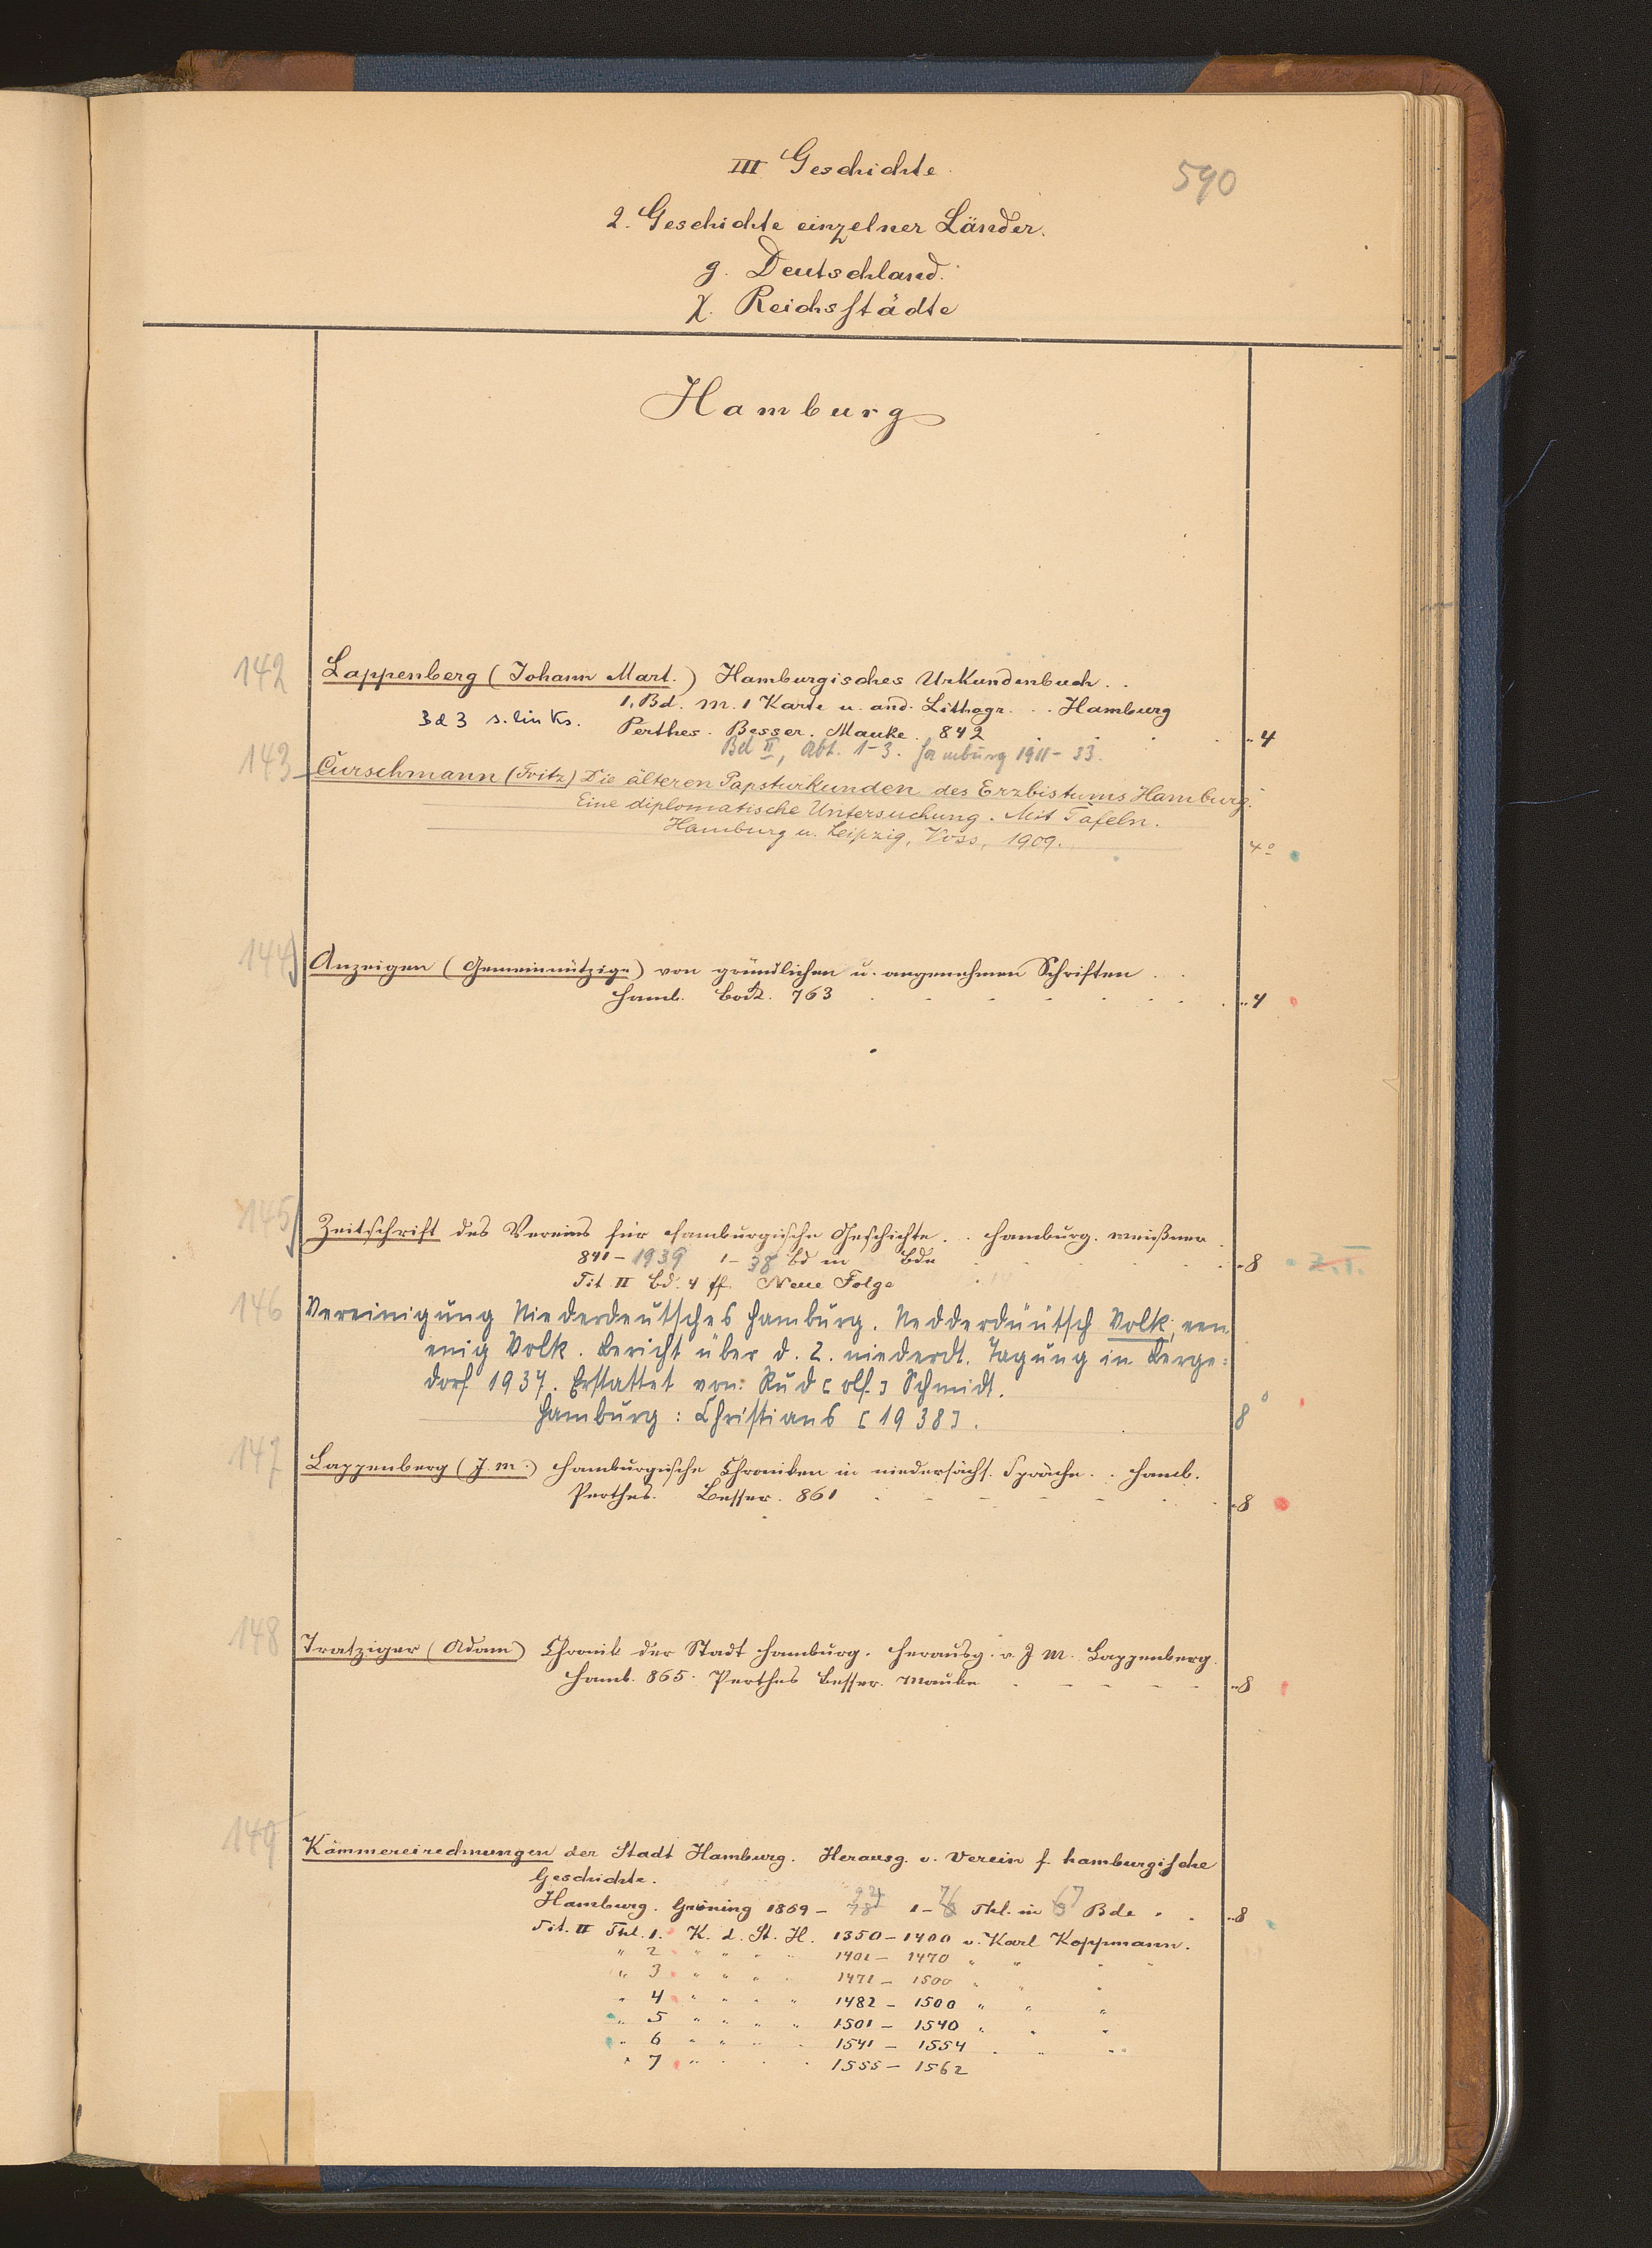 III Geschichte.
590
2. Geschichte einzelner Länder.
g. Deutschland.
χ. Reichsstädte
Hamburg
142 Lappenberg (Johann Mart.) Hamburgisches Urkundenbuch..
1. Bd. M. 1 Karte u. and. Lithogr. .. Hamburg
Bd 3 s. links. Perthes. Besser. Mauke. 842 4
Bd II, Abt. 1-3. Hamburg 1911-33.
143 Curschmann (Fritz) Die älteren Papsturkunden des Erzbistums Hamburg.
Eine diplomatische Untersuchung. Mit Tafeln.
Hamburg u. Leipzig, Voss, 1909. 4°
144) Anzeigen (Gemeinnützige) von gründlichen u. angenehmen Schriften ..
Hamb. Bock. 763 4
145) Zeitschrift des Vereins für hamburgische Geschichte. .. Hamburg. Meißner
841-1939 1-38 Bd in Bdn 8 Z.T.
Tit. II Bd. 4 ff. Neue Folge
146 Vereinigung Niederdeutsches Hamburg. Nedderdüütsch Volk, een
enig Volk. Bericht über d. 2. niederdt. Tagung in Berge=
dorf 1937. Erstattet von: Rud[olf] Schmidt.
Hamburg: Christians [1938]. 8°
147 Lappenberg (J. M.) Hamburgische Chroniken in niedersächs. Sprache. .. Hamb.
Perthes. Besser. 861 8
148 Tratziger (Adam) Chronik der Stadt Hamburg. Herausg. v. J. M. Lappenberg.
Hamb. 865. Perthes Besser. Mauke 8
149 Kämmereirechnungen der Stadt Hamburg. Herausg. v. Verein f. hamburgische
Geschichte.
Hamburg. Grüning 1869- 1- Thl. in 7 Bde. 8
Tit. II Thl. 1. K. d. St. H. 1350-1400 v. Karl Koppmann.
" 2 " " " " 1401-1470 " " "
" 3 " " " " 1471-1500 " " "
" 4 " " " " 1482-1500 " " "
" 5 " " " " 1501-1540 " " "
" 6 " " " " 1541-1554 " " "
" 7 " " " " 1555-1562